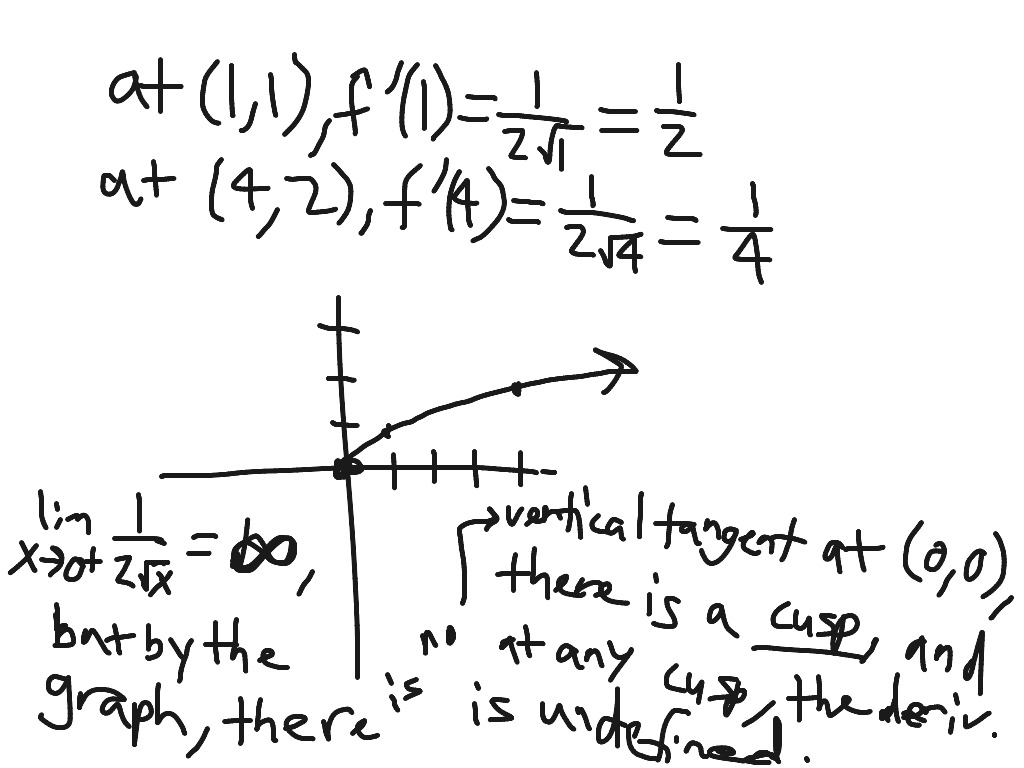 at (1,1), f'(1) = 1/(2√1) = 1/2
at (4,2), f'(4) = 1/(2√4) = 1/4
lim x→0+ 1/(2√x) = ∞,
but by the
graph, there is no
→ vertical tangent at (0,0),
there is a cusp, and
at any cusp, the deriv.
is undefined.